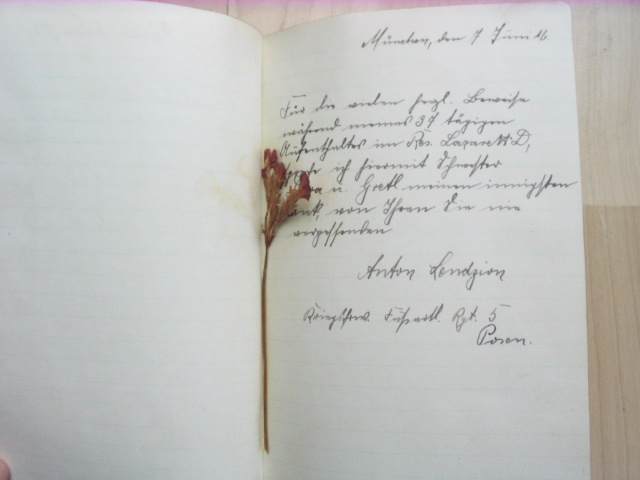 München, den 7 Juni 16.
Für die vielen herzl. Beweise
während meines 37 tägigen
Aufenthaltes im Res. Lazarett D,
ich hiermit Schwester
u. Gretl meinen innigsten
von Ihren Sie nie
vergessenden
Anton Lendzion
Kriegsfrw. Fußartl. Rgt. 5
Posen.